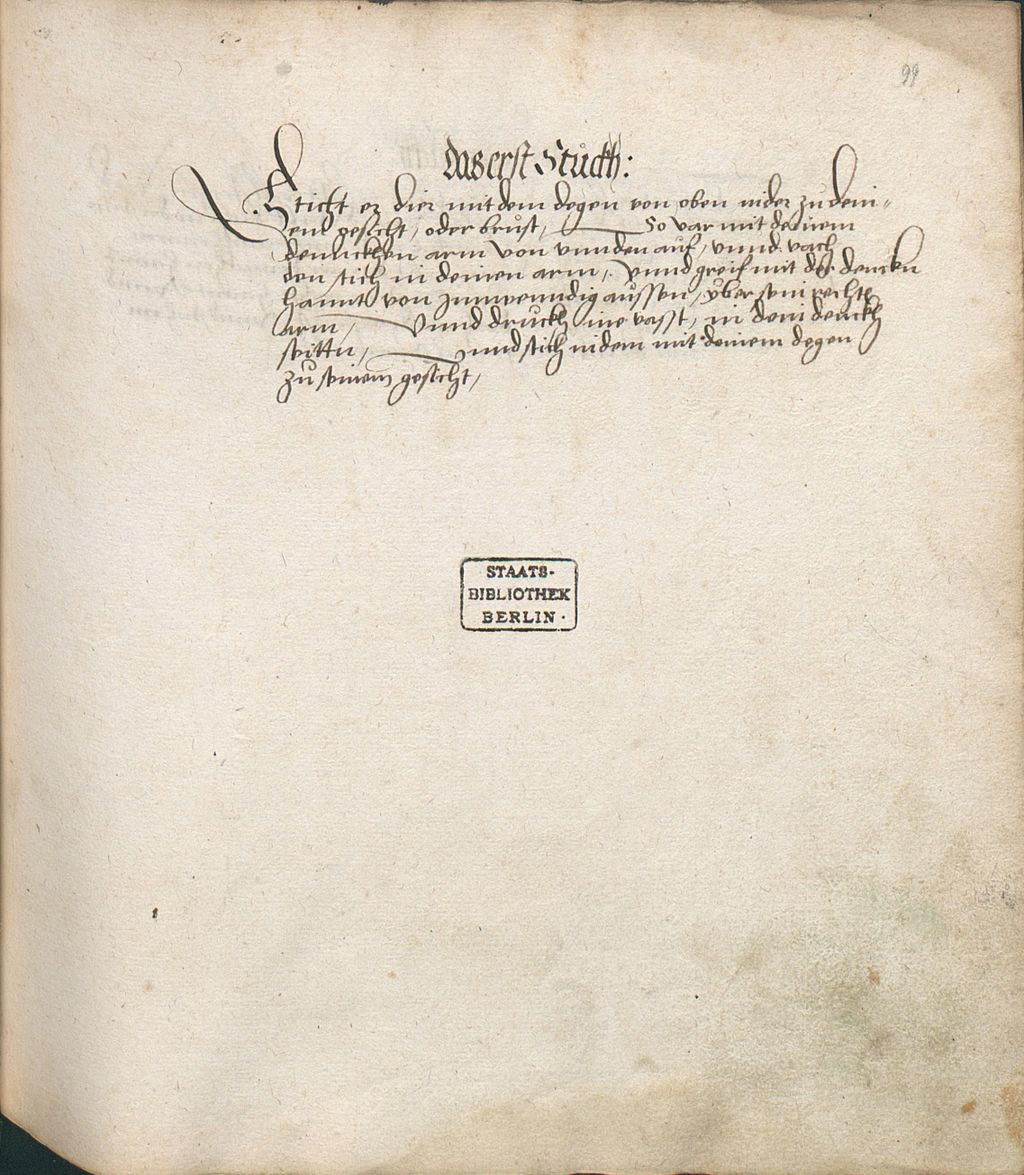 99
das erst Stuckh:
Sticht er dier mit dem degen von oben nider zu dein-
em gesicht, oder brust, So var mit deinem
dennckhen arm von unnden auf, unnd vach
den stich in deinen arm, unnd greif mit der dencken
hannt von Innwenndig aussen, über sein rechte
arm, Unnd druckh ine vasst, in dein denckh
seittn, und stich indem mit deinem degen
zu seinem gesicht,
STAATS-
BIBLIOTHEK
BERLIN.